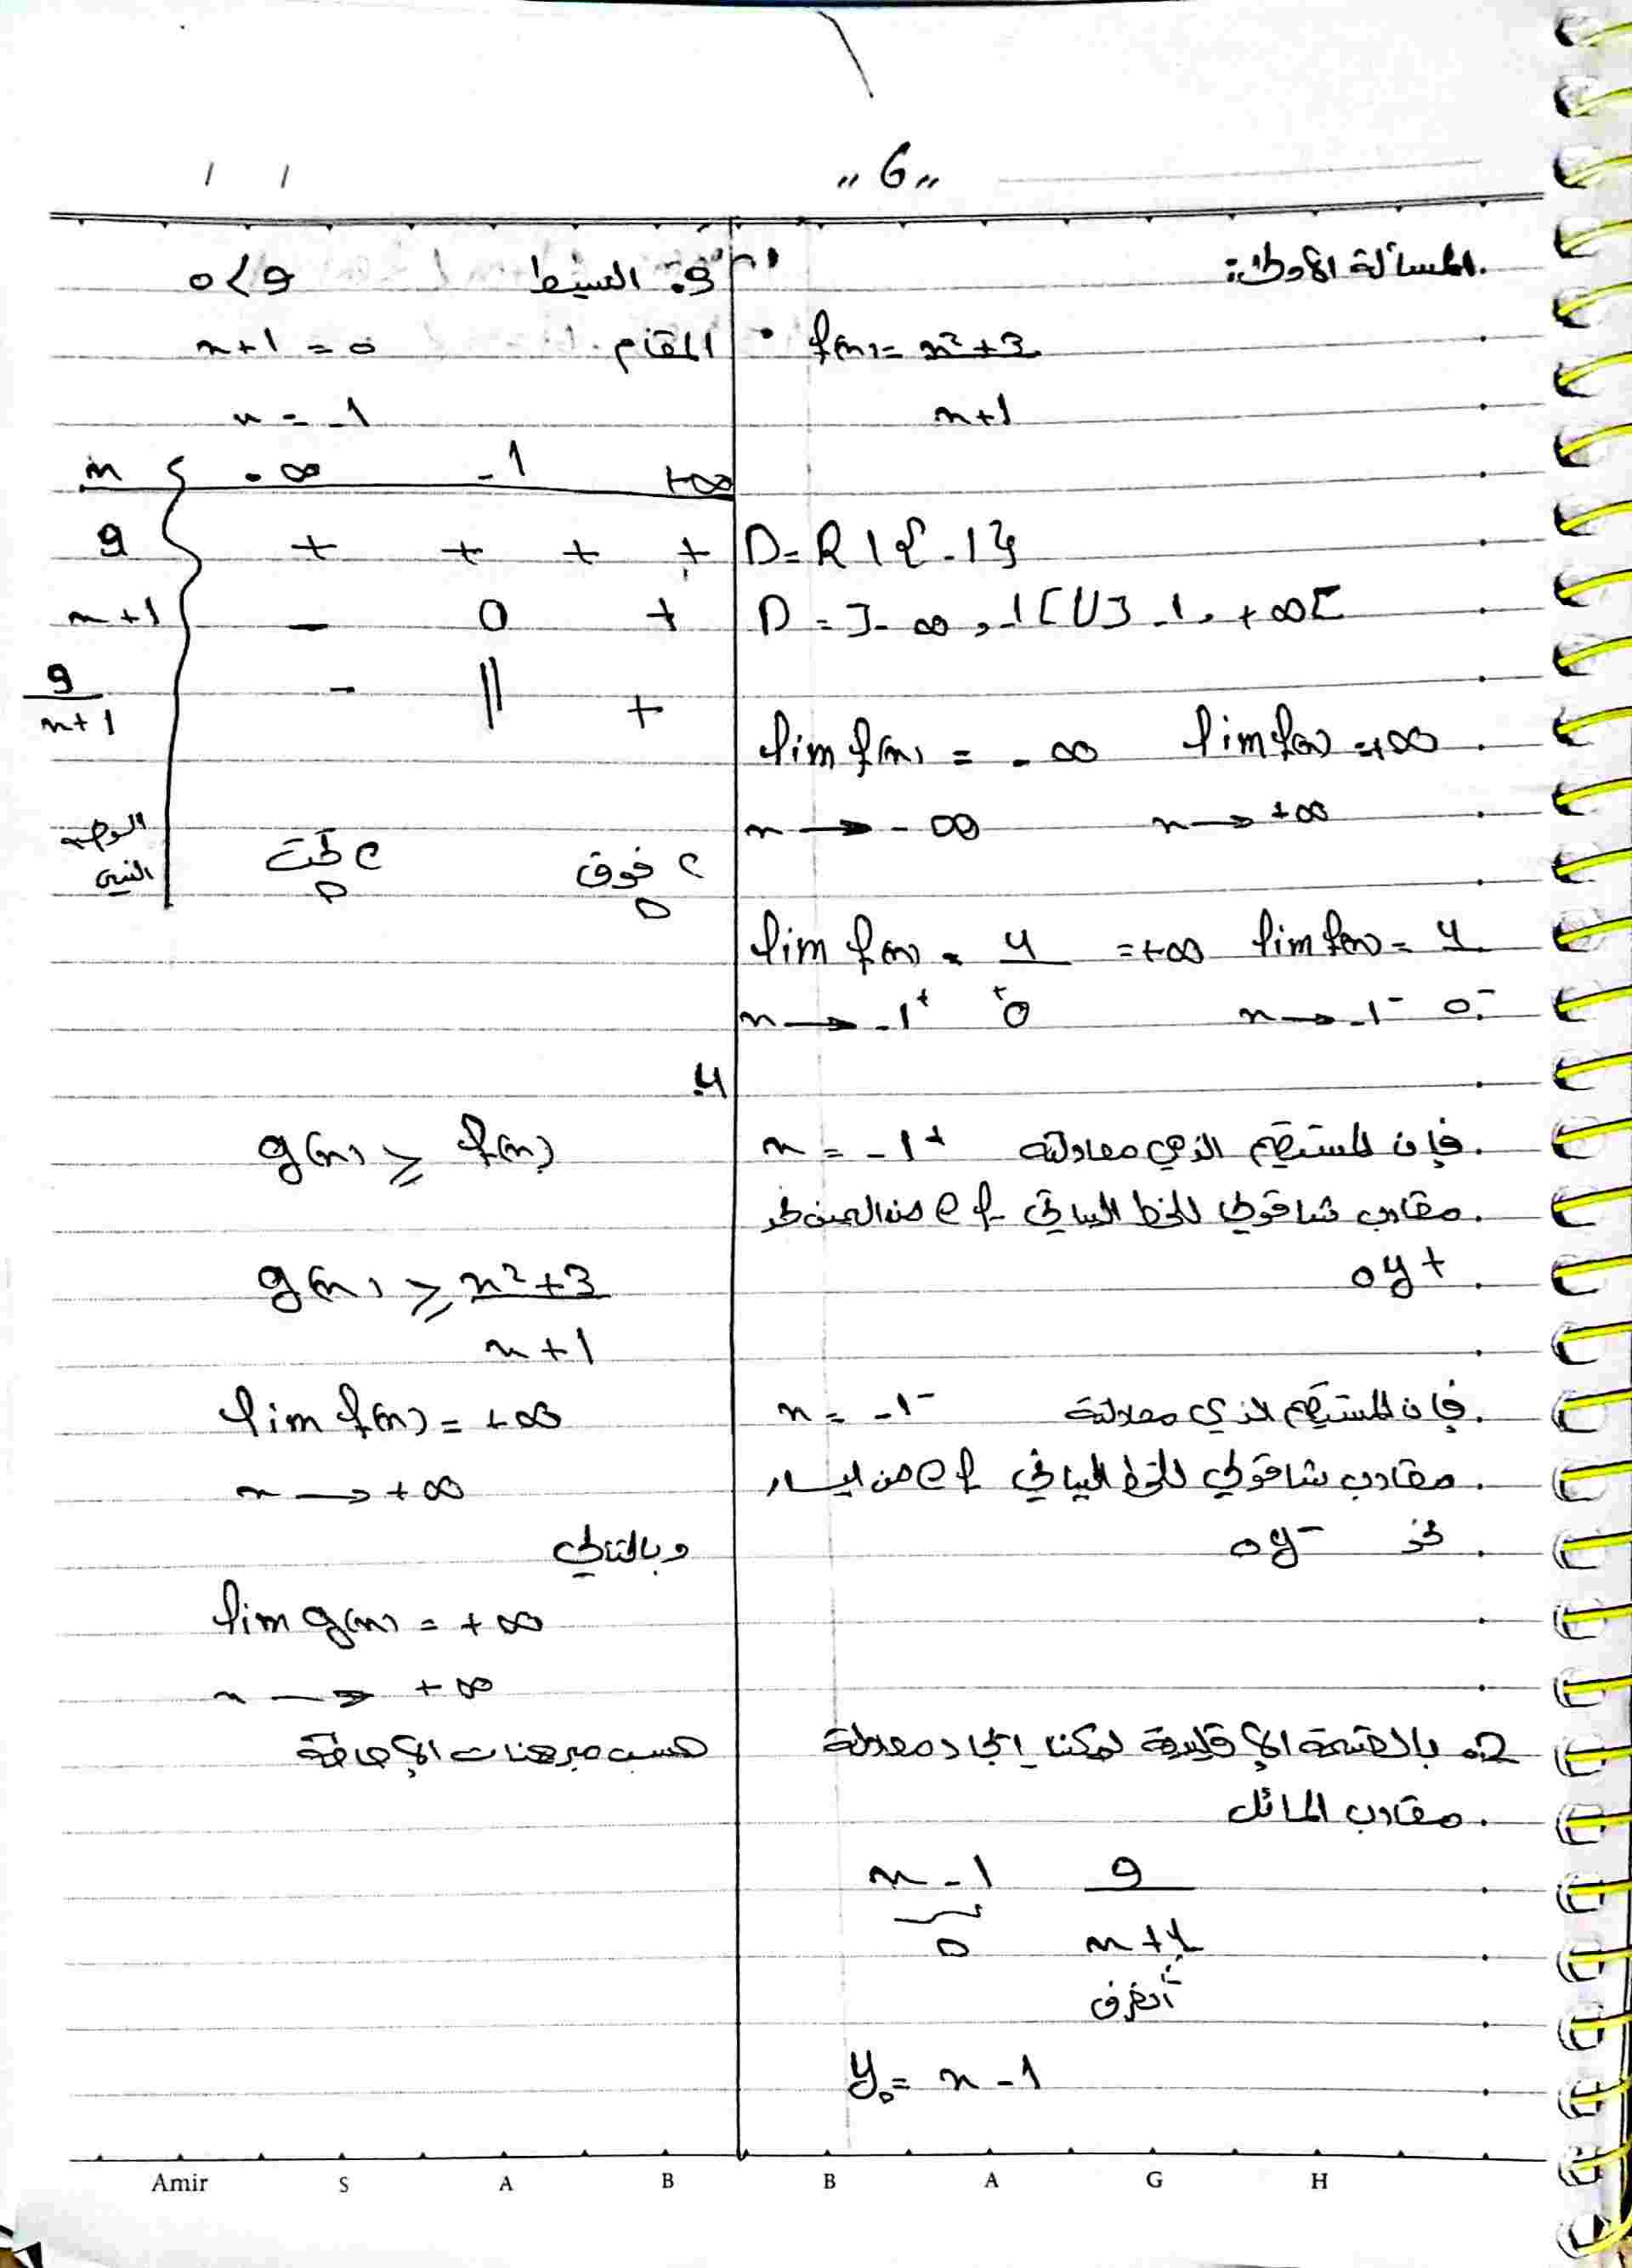 "6"
/ /
المسألة الأولى:
f(x) = x²+3
x+1
D = R \ {-1}
D = ]-∞, -1[ U ]-1, +∞[
lim f(x) = -∞ lim f(x) = +∞
x → -∞ x → +∞
lim f(x) = 4 = +∞ lim f(x) = 4
x → -1⁺ 0⁺ x → -1⁻ 0⁻
فإن المستقيم الذي معادلته x = -1⁺
مقارب شاقولي للخط البياني C f من اليمين نحو
oy⁺
فإن المستقيم الذي معادلته x = -1⁻
مقارب شاقولي للخط البياني C f من اليسار
نحو oy⁻
2. بالقسمة الإقليدية يمكننا إيجاد معادلة
مقارب المائل
x - 1 9
Δ x+1
y_Δ = x - 1
البسيط 9 > 0
المقام x+1 = 0
x = -1
x -∞ -1 +∞
9 + + + +
x+1 - 0 +
9 - || +
x+1
الوضع C تحت C فوق
النسبي Δ Δ
4.
g(x) ≥ f(x)
g(x) ≥ x²+3
x+1
lim f(x) = +∞
x → +∞
وبالتالي
lim g(x) = +∞
x → +∞
حسب مبرهنات الإحاطة
Amir S A B B A G H